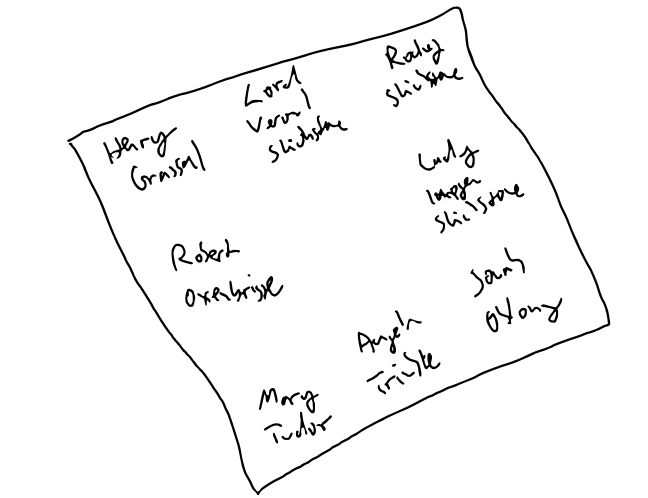 Henry
Grassal
Lord
Vernal
Slickstone
Rodney
Slickstone
Lady
Imogen
Slickstone
Robert
Oxenbrigge
Sarah
Angela
Mary
Tudor